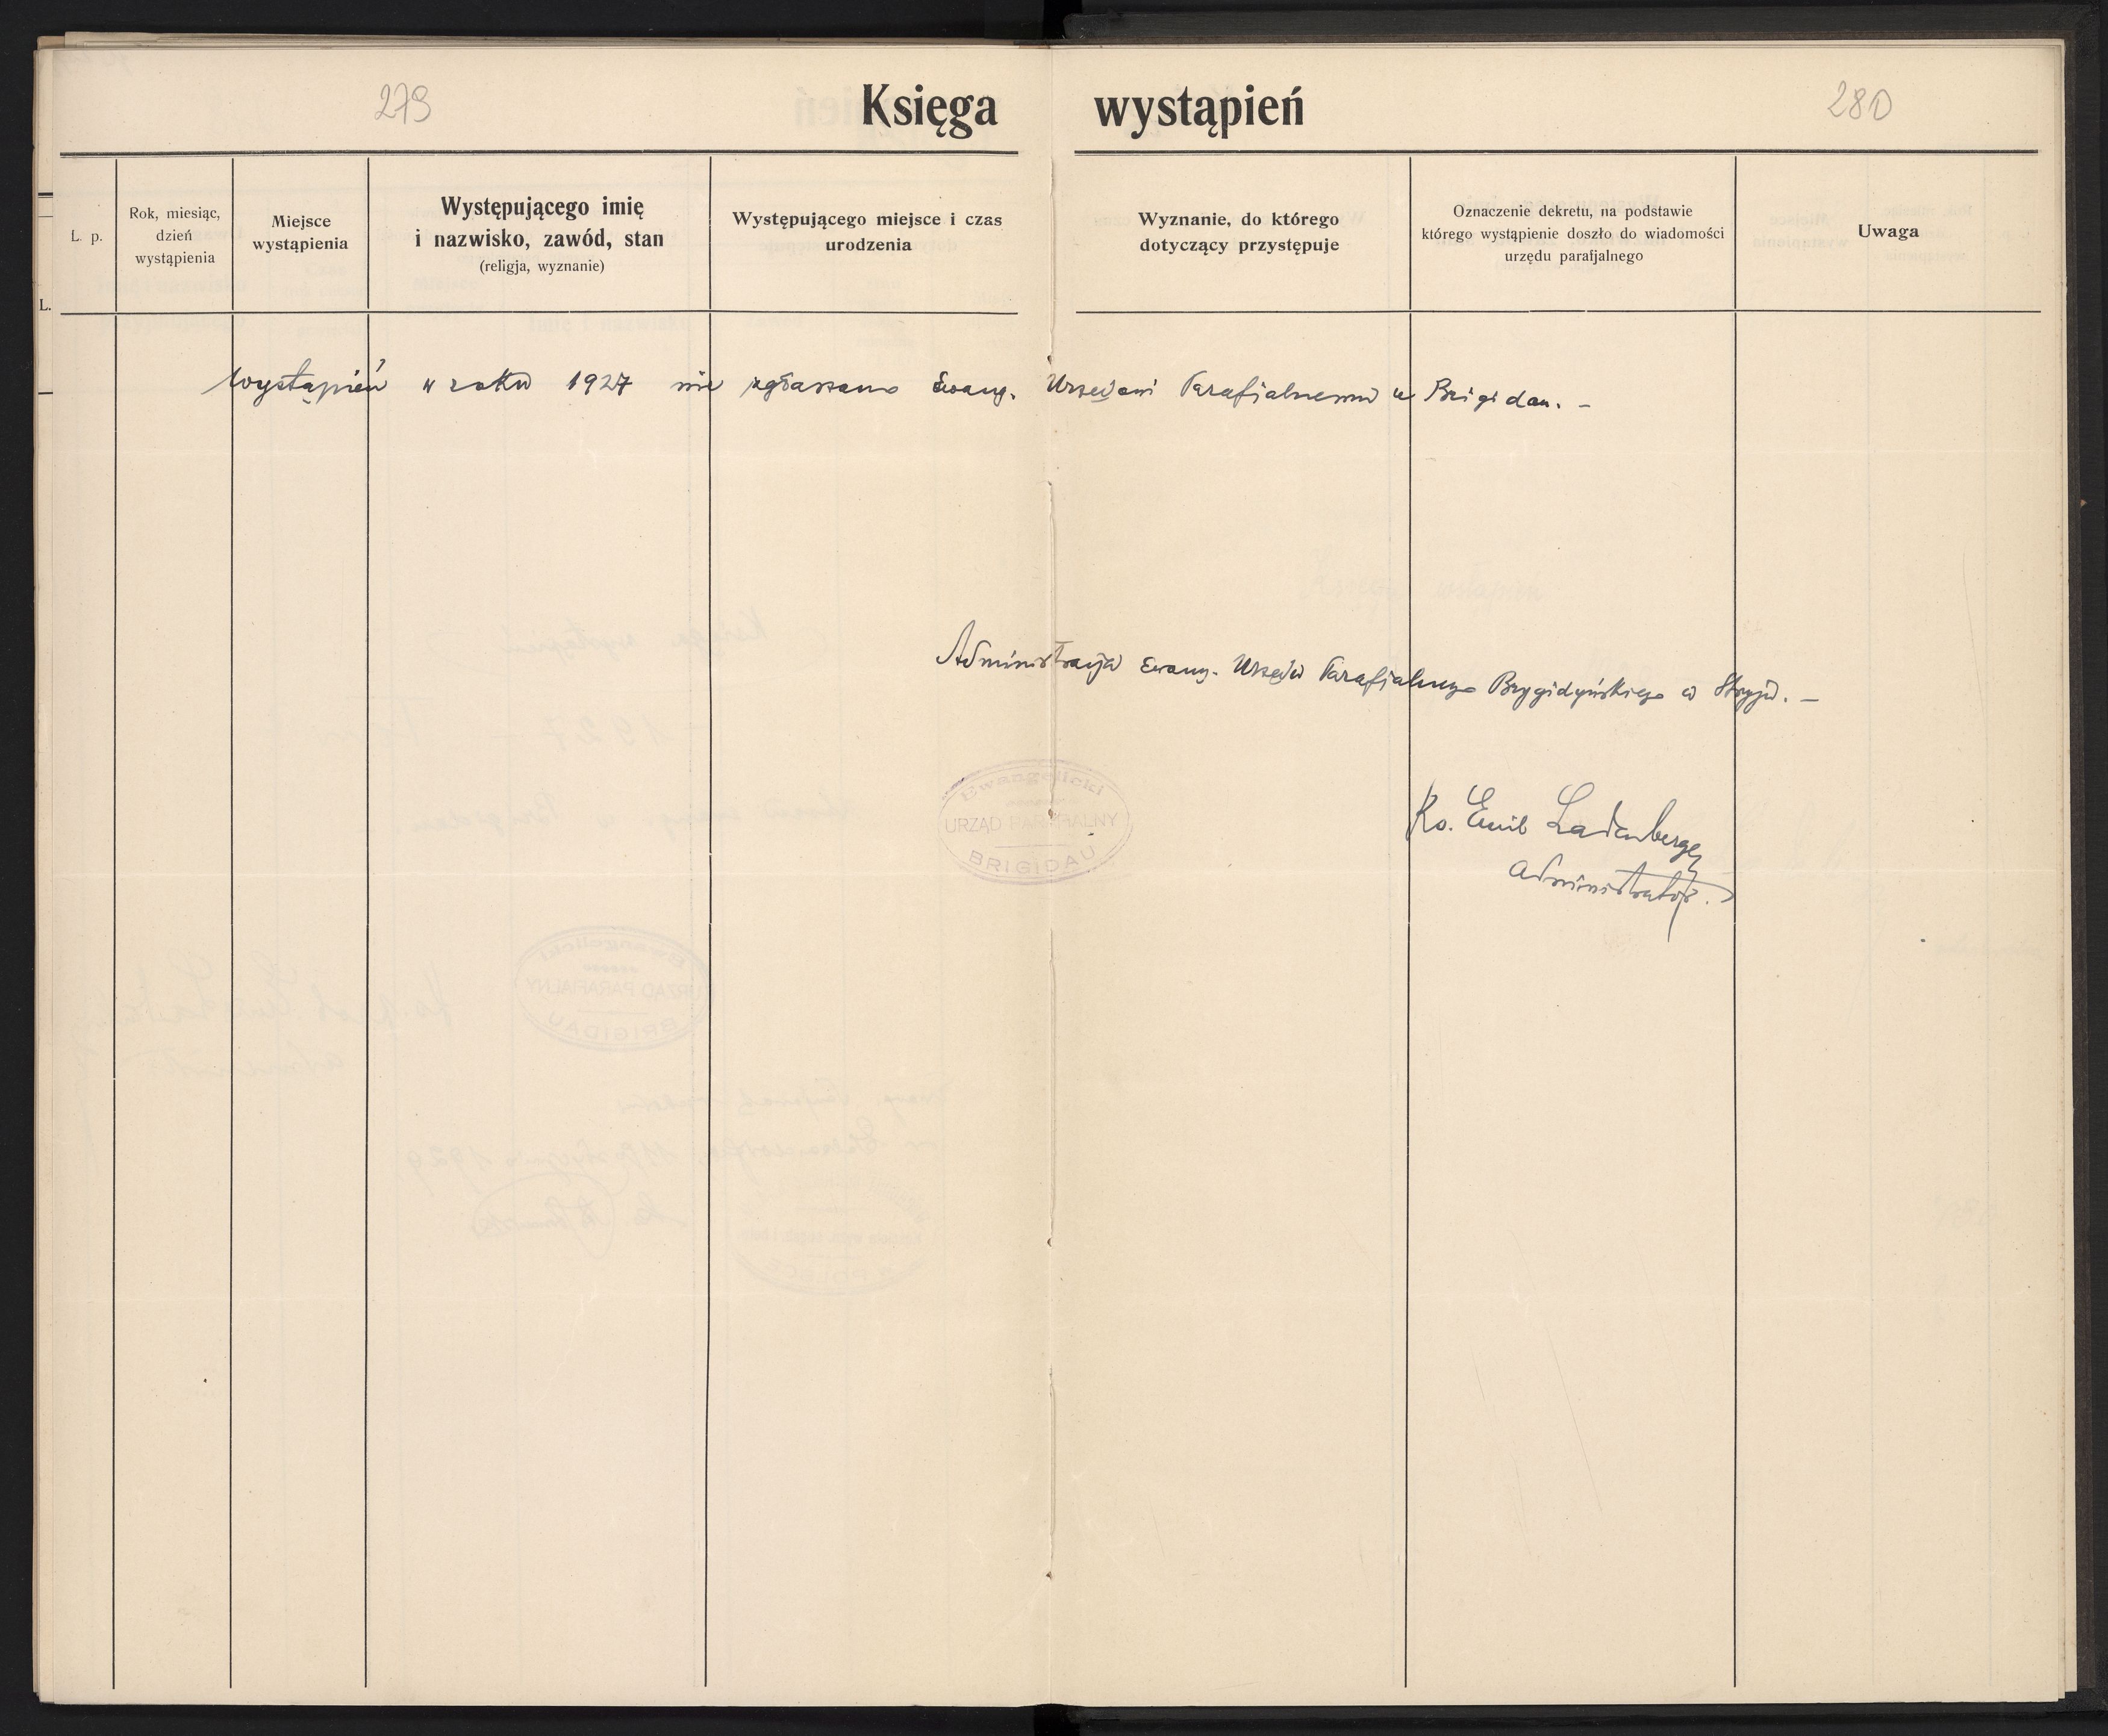 279
280
Księga wystąpień
L. p.
Rok, miesiąc,
dzień
wystąpienia
Miejsce
wystąpienia
Występującego imię
i nazwisko, zawód, stan
(religja, wyznanie)
Występującego miejsce i czas
urodzenia
Wyznanie, do którego
dotyczący przystępuje
Oznaczenie dekretu, na podstawie
którego wystąpienie doszło do wiadomości
urzędu parafjalnego
Uwaga
L.
Wystąpień w roku 1927 nie zgłaszano Ewang. Urzędowi Parafialnemu w Brigidau. -
Administracja Ewang. Urzędu Parafialnego Brygidyńskiego w Stryju. -
Ewangelicki
URZĄD PARAFIALNY
BRIGIDAU
Ks. Emil Ladenberger
administrator.